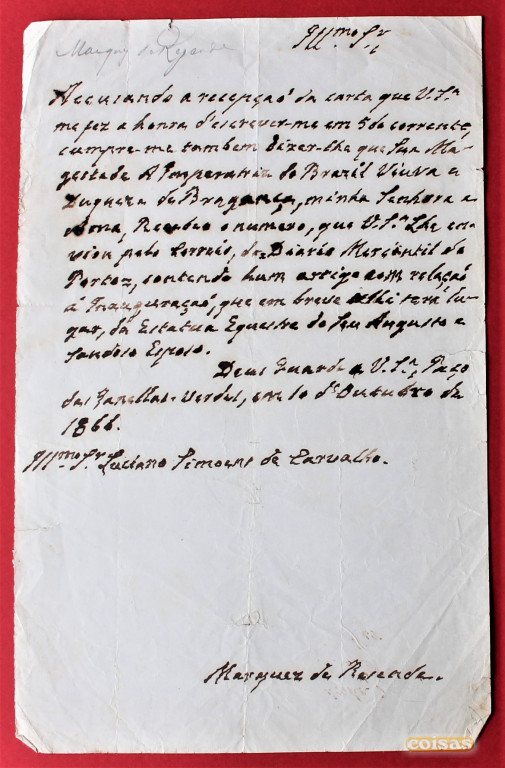 Marquez de Rezende
Illmo Sr
Accusando a recepçaõ da carta que V.Sª
me fez a honra d'escrever-me em 5 do corrente,
cumpre-me tambem dizer-lhe que Sua Ma-
gestade A Imperatriz do Brazil Viuva e
Duqueza de Bragança, minha Senhora e
Ama, Recebeo o numero, que V.Sª Lhe en-
viou pelo Correio, do = Diario Mercantil do
Porto =, contendo hum artigo com relaçaõ
á Inauguraçaõ, que em breve alhi terá lu-
gar, da Estatua Equestre do Seu Augusto e
Saudoso Esposo.
Deus Guarde a V.Sª, Paço
das Janellas-Verdes, em 10 d'Outubro de
1866.
Illmo Sr Luciano Simoens de Carvalho.
Marquez de Resende.
coisas